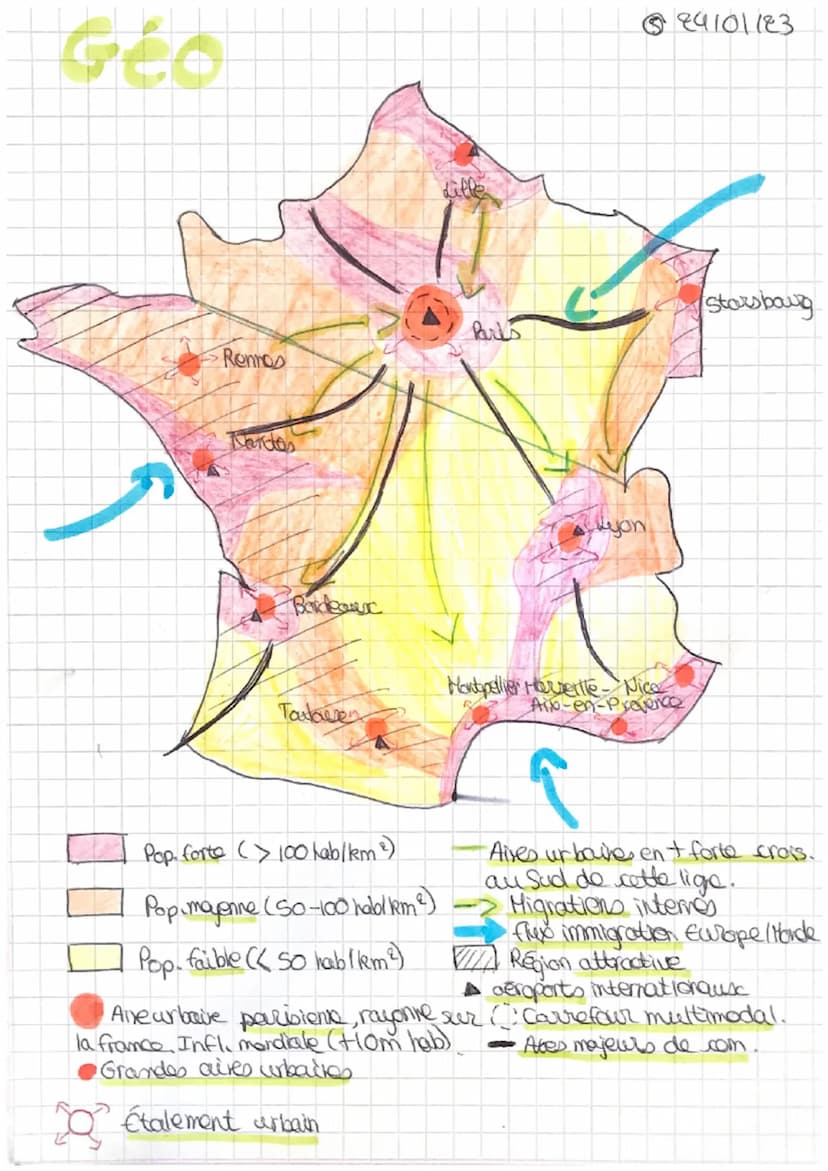 Géo
⑤ 24/01/23
Lille
Paris
Starsbourg
Rennes
Nantes
Lyon
Bordeaux
Montpellier Marseille- Nice
Aix-en-Provence
Toulouse
Pop. forte (> 100 hab/km²)
Pop. moyenne (50-100 hab/km²)
Pop. faible (< 50 hab/km²)
Aire urbaine parisiene, rayonne sur
la france. Infl. mondiale (+10m hab).
Grandes aires urbaines
Étalement urbain
Aires urbaines en + forte crois.
au Sud de cette lige.
Migrations internes
flux immigration Europe/Monde
Région attractive
aéroports internationaux
Carrefour multimodal.
Axes majeurs de com.